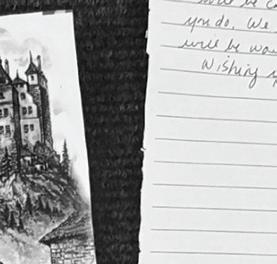 you do. We
will be wa
Wishing y